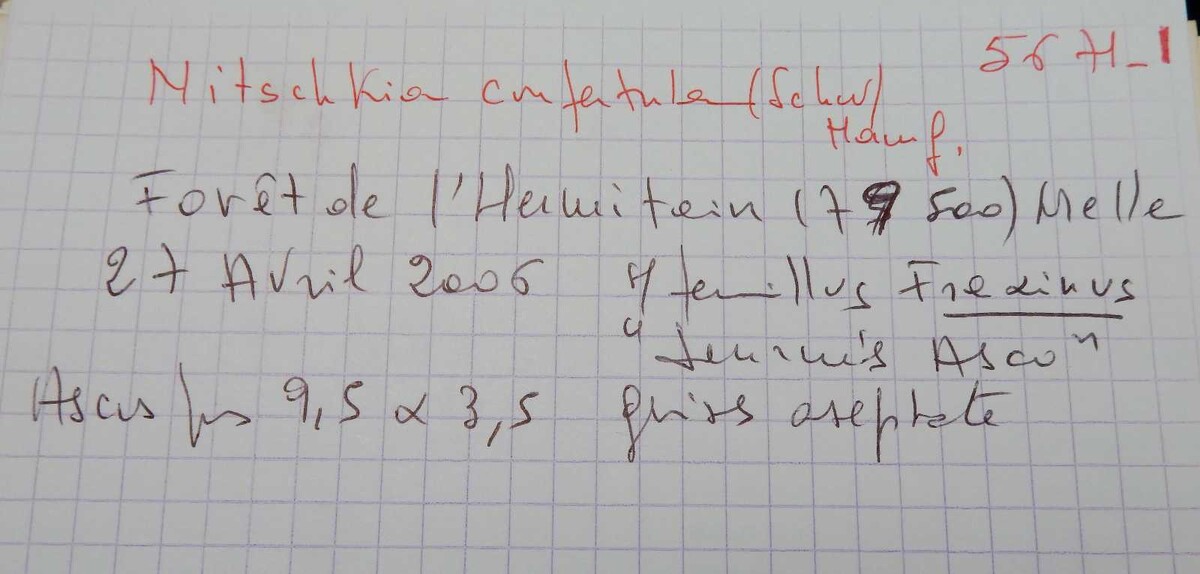 56 H_1
Nitschkia confertula (Schw)
Hamf.
Forêt de l'Hermitain (79 500) Melle
27 Avril 2006 s/ feuillus Fraxinus
s/ Asco^n
Ascus 9,5 x 3,5 gris aseptate